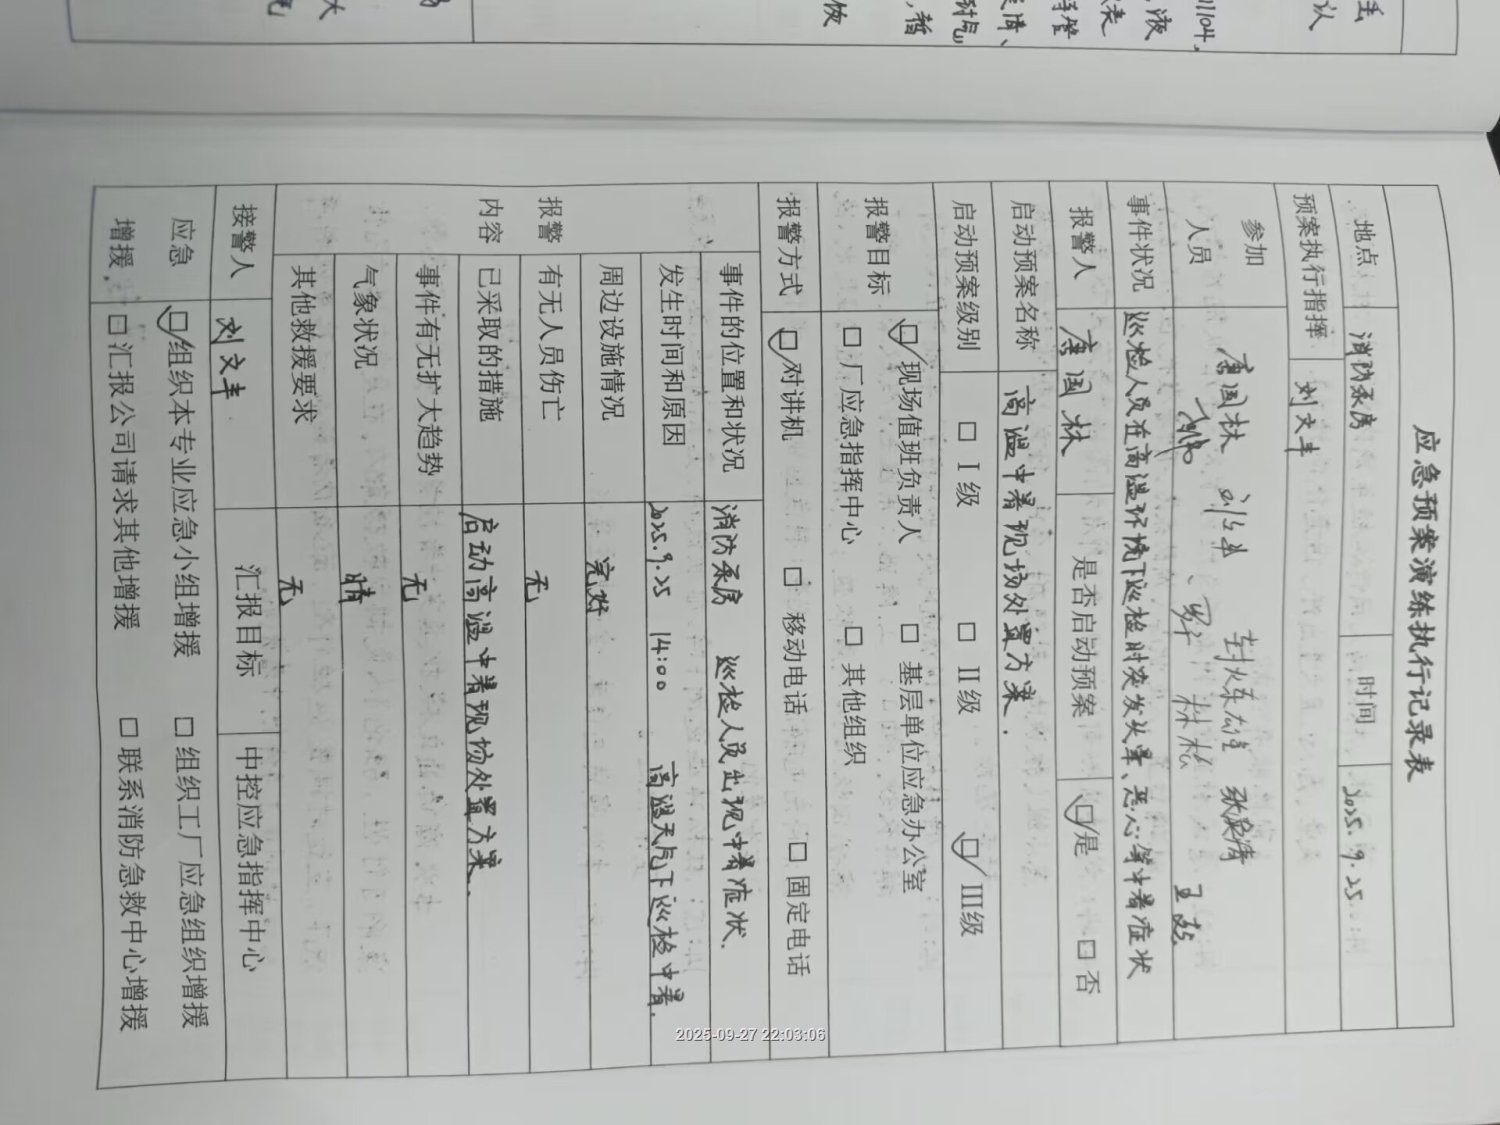 应急预案演练执行记录表
地点 消防泵房 时间 2025.9.25
预案执行指挥 刘文丰
参加人员 唐国林 刘文丰 张泉清
林松 王喆
事件状况 巡检人员在高温环境下巡检时突发头晕、恶心等中暑症状
报警人 唐国林 是否启动预案 ☑是 □否
启动预案名称 高温中暑现场处置方案.
启动预案级别 □ I级 □ II级 ☑ III级
报警目标 ☑现场值班负责人 □ 基层单位应急办公室
□ 厂应急指挥中心 □ 其他组织
报警方式 ☑对讲机 □ 移动电话 □ 固定电话
报警内容
事件的位置和状况 消防泵房 巡检人员出现中暑症状.
发生时间和原因 2025.9.25 14:00 高温天气下巡检中暑.
周边设施情况 完好
有无人员伤亡 无
已采取的措施 启动高温中暑现场处置方案.
事件有无扩大趋势 无
气象状况 晴
其他救援要求 无
接警人 刘文丰 汇报目标 中控应急指挥中心
应急增援 ☑组织本专业应急小组增援 □ 组织工厂应急组织增援
□汇报公司请求其他增援 □ 联系消防急救中心增援
2025-09-27 22:03:06